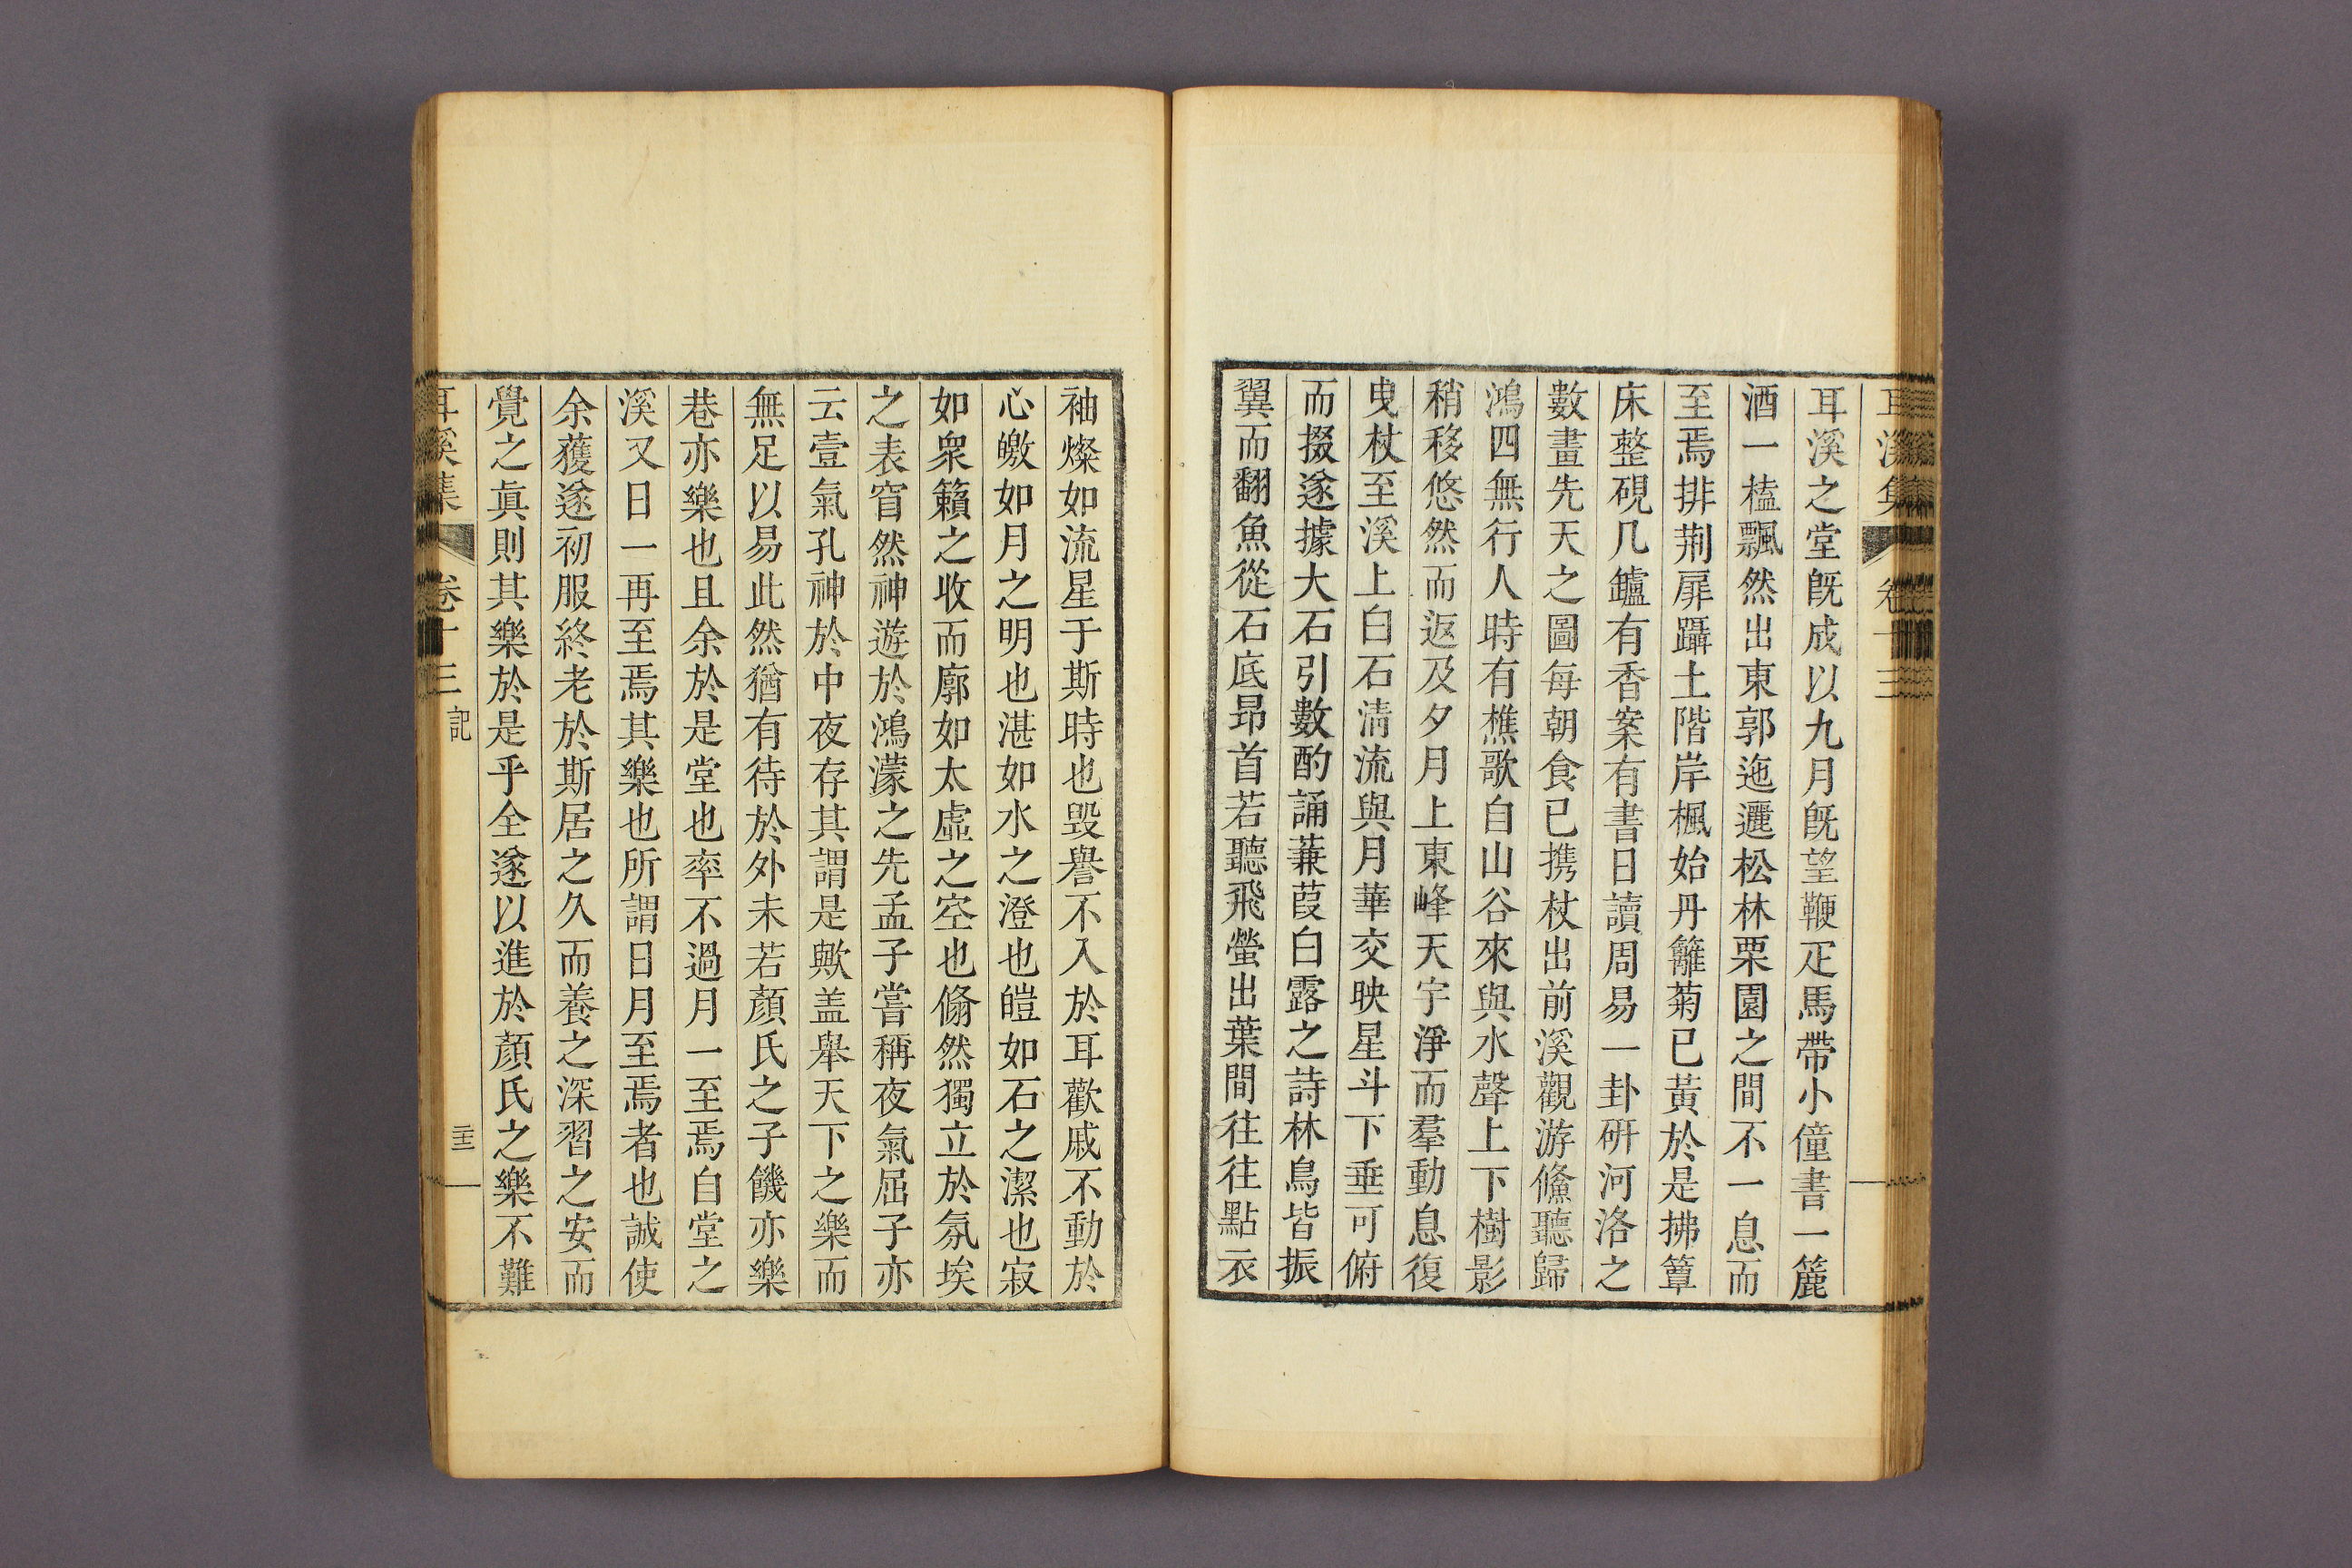 耳溪集 卷十三
耳溪之堂旣成以九月旣望鞭疋馬帶小僮書一簏
酒一榼飄然出東郭迤邐松林栗園之間不一息而
至焉排荆扉躡土階岸楓始丹籬菊已黃於是拂簟
床整硯几鑪有香案有書日讀周易一卦硏河洛之
數畫先天之圖每朝食已携杖出前溪觀游鯈聽歸
鴻四無行人時有樵歌自山谷來與水聲上下樹影
稍移悠然而返及夕月上東峰天宇淨而羣動息復
曳杖至溪上白石淸流與月華交映星斗下垂可俯
而掇遂據大石引數酌誦蒹葭白露之詩林鳥皆振
翼而翻魚從石底昂首若聽飛螢出葉間往往點衣
袖燦如流星于斯時也毁譽不入於耳歡戚不動於
心皦如月之明也湛如水之澄也皚如石之潔也寂
如衆籟之收而廓如太虛之空也翛然獨立於氛埃
之表窅然神遊於鴻濛之先孟子嘗稱夜氣屈子亦
云壹氣孔神於中夜存其謂是歟盖舉天下之樂而
無足以易此然猶有待於外未若顏氏之子饑亦樂
巷亦樂也且余於是堂也率不過月一至焉自堂之
溪又日一再至焉其樂也所謂日月至焉者也誠使
余獲遂初服終老於斯居之久而養之深習之安而
覺之眞則其樂於是乎全遂以進於顏氏之樂不難
耳溪集 卷十三 記